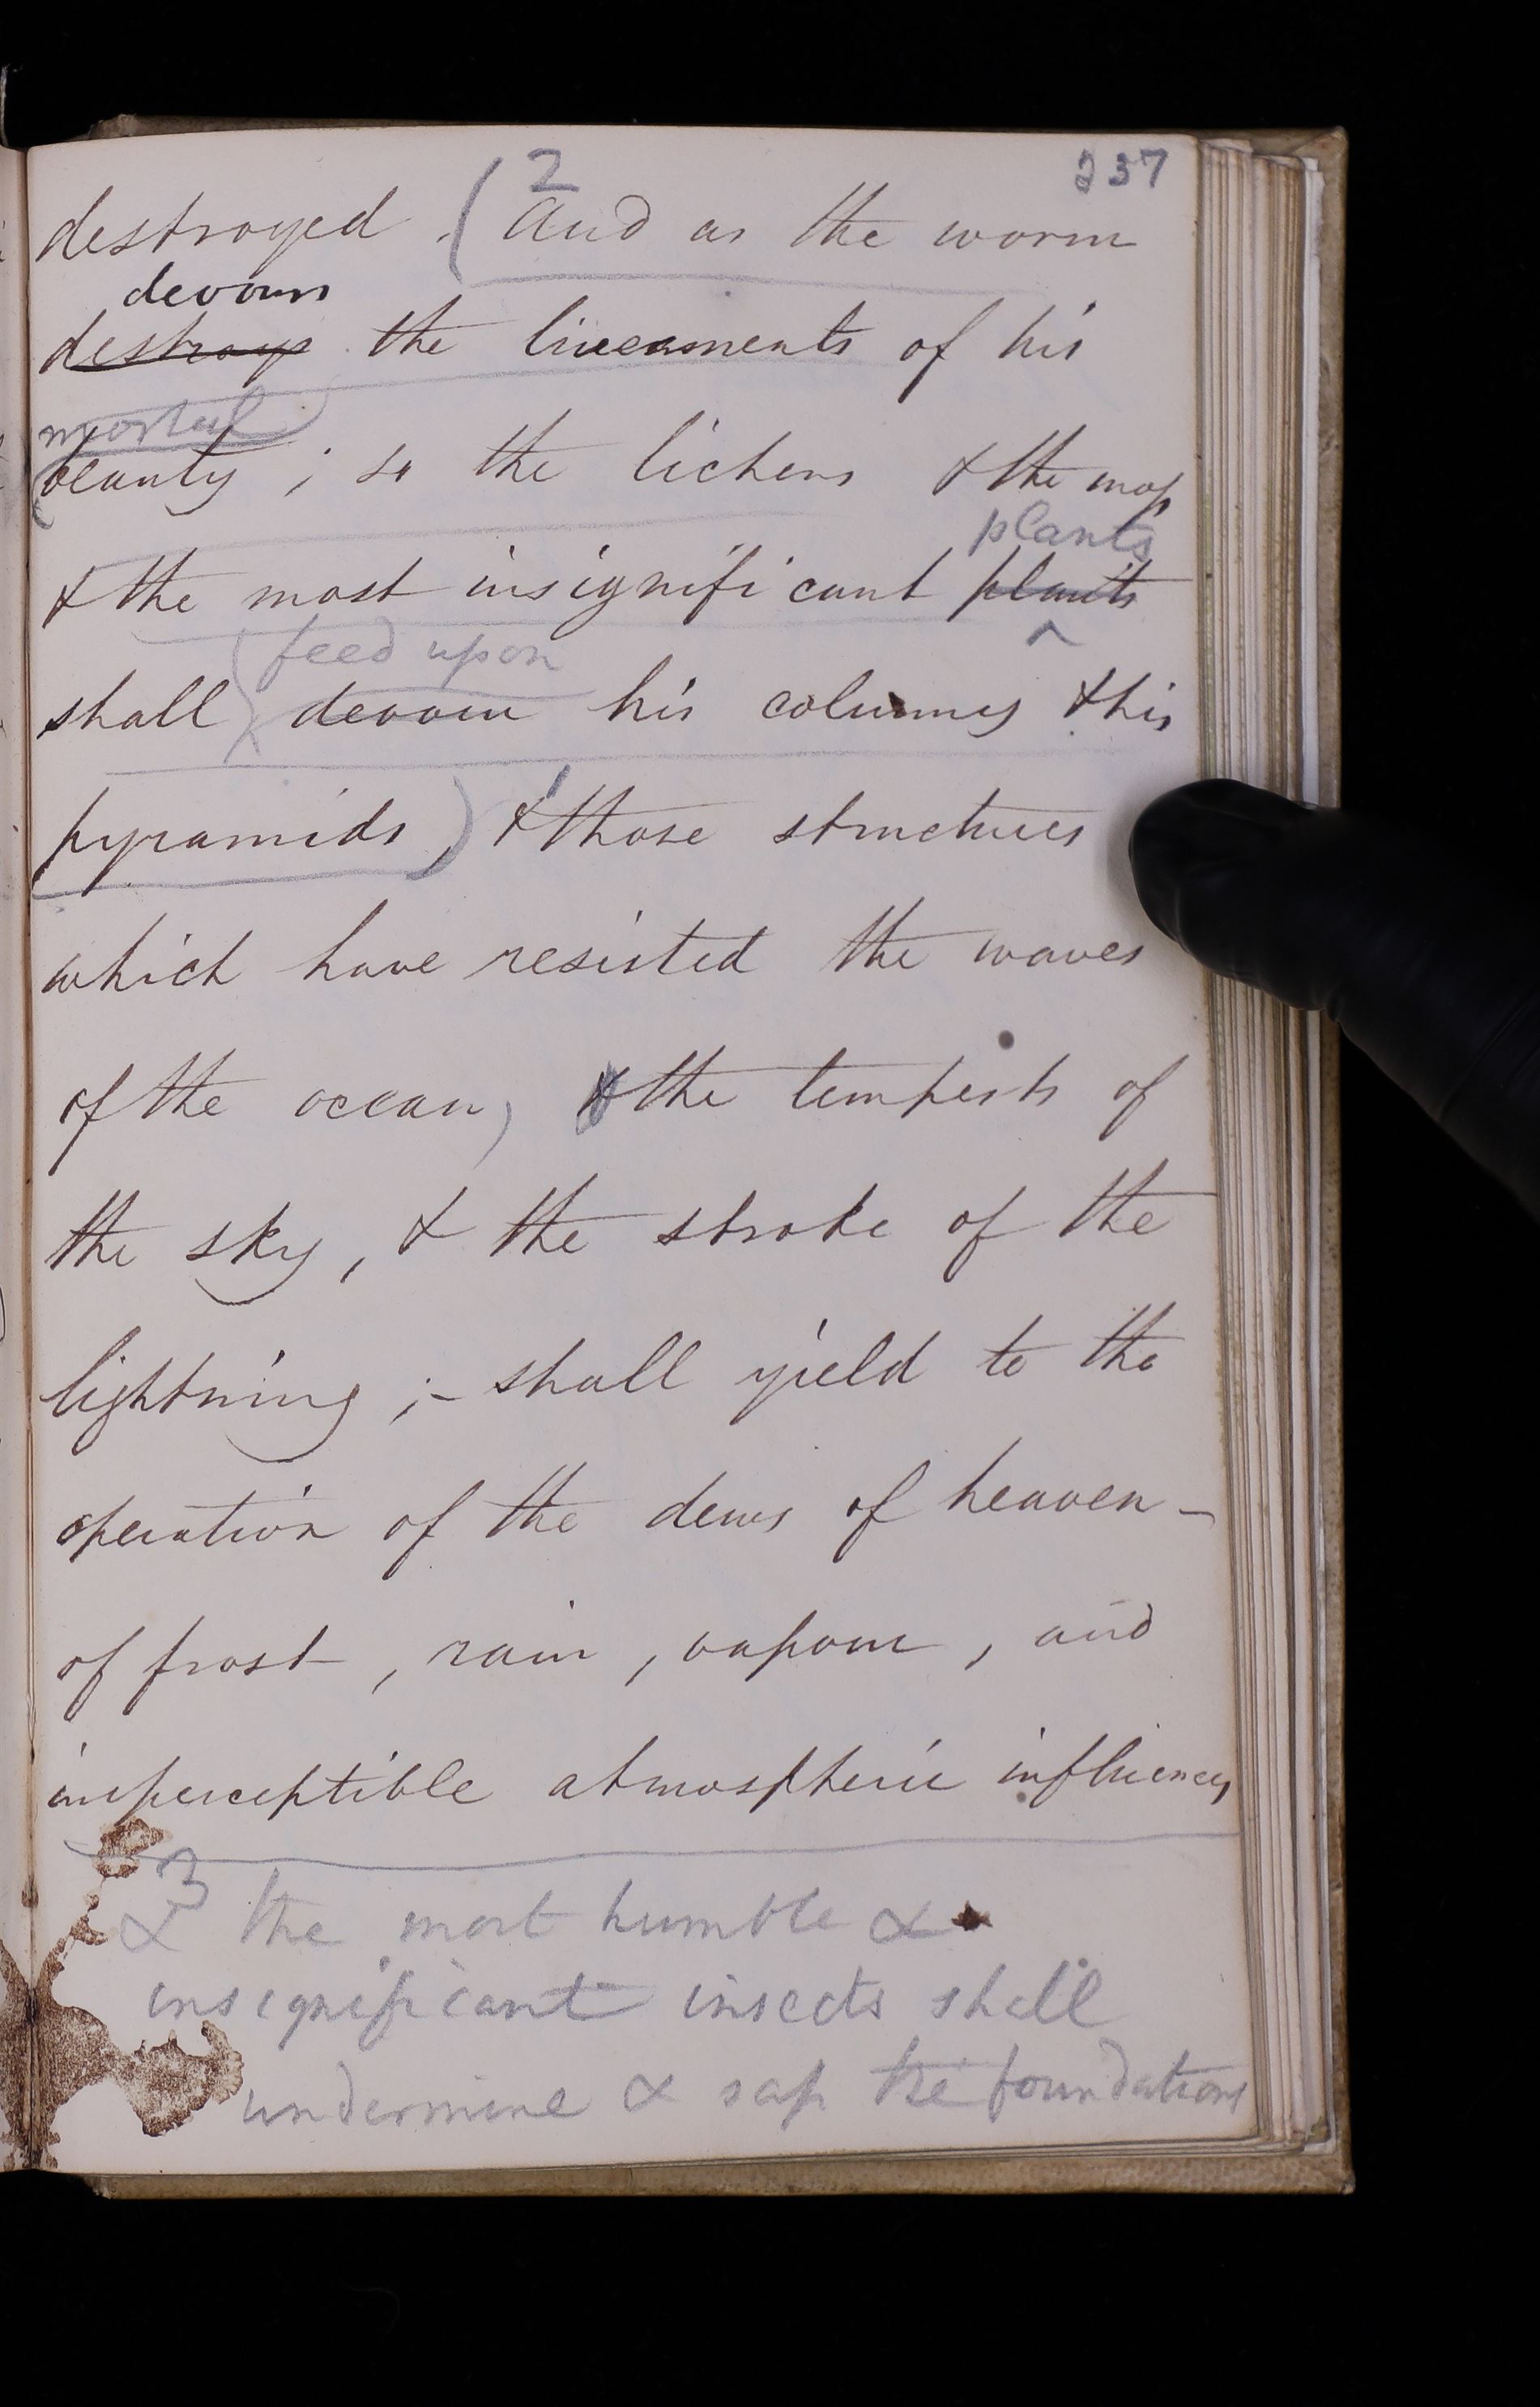 237
2
destroyed . ( And as the worm
devours
destroys the lineaments of his
mortal
beauty ; so the lichens & the moss
plants
& the most insignificant plants
feed upon
shall devour his columns & his
pyramids , ) & those structures
which have resisted the waves
of the ocean , & the tempests of
the sky , & the stroke of the
lightning ; - shall yield to the
operation of the dews of heaven -
of frost , rain , vapour , and
imperceptible atmospheric influences
3
& the most humble &
insignificant insects shall
undermine & sap the foundations